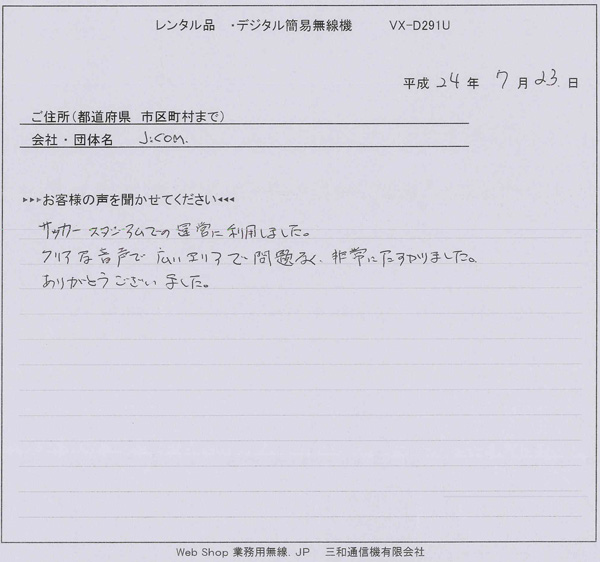 レンタル品 ・デジタル簡易無線機 VX-D291U
平成 24 年 7 月 23 日
ご住所(都道府県 市区町村まで)
会社・団体名 J:COM.
▸▸▸お客様の声を聞かせてください◂◂◂
サッカースタジアムでの運営に利用しました。
クリアな音声で広いエリアで問題なく、非常にたすかりました。
ありがとうございました。
Web Shop 業務用無線.JP 三和通信機有限会社